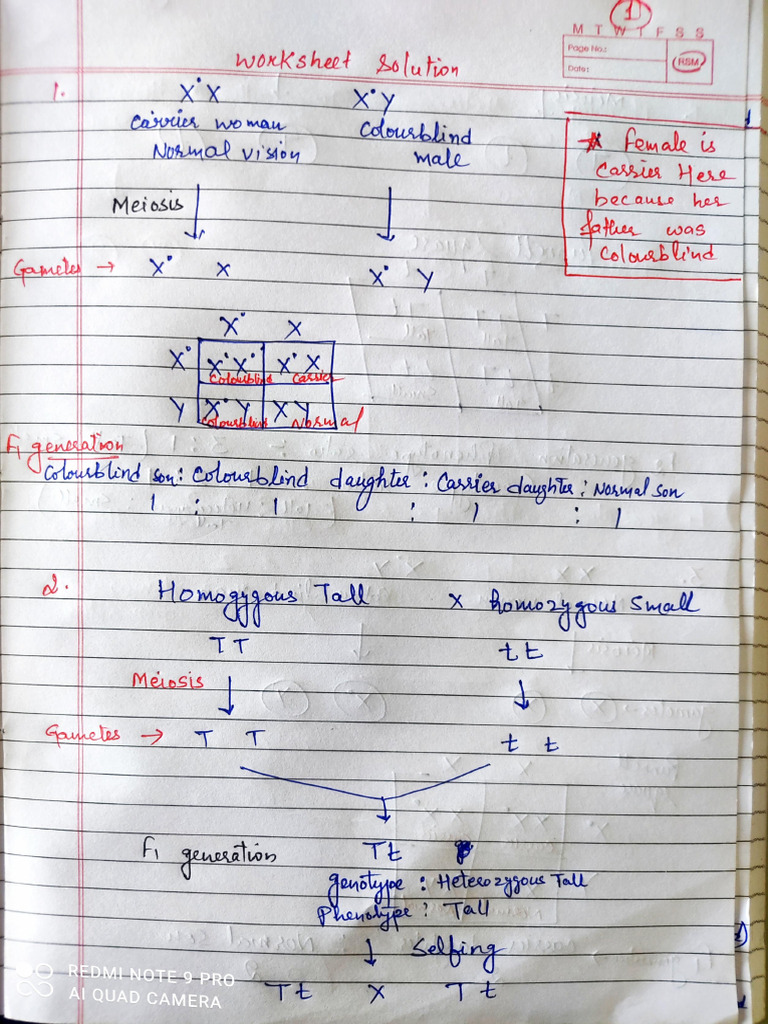 1
M T W T F S S
Page No.:
Date:
RSM
Worksheet Solution
1.
X° X X° Y
Carrier woman Colourblind
Normal vision male
* Female is
Carrier Here
because her
father was
Colourblind
Meiosis
Gametes → X° X X° Y
X° X
X° X°X° X°X
Colourblind Carrier
Y X°Y XY
Colourblind Normal
F1 generation
Colourblind son : Colourblind daughter : Carrier daughter : Normal son
1 : 1 : 1 : 1
2.
Homozygous Tall x homozygous Small
TT tt
Meiosis
Gametes → T T t t
F1 generation Tt
genotype : Heterozygous Tall
Phenotype : Tall
Selfing
Tt X Tt
REDMI NOTE 9 PRO
AI QUAD CAMERA